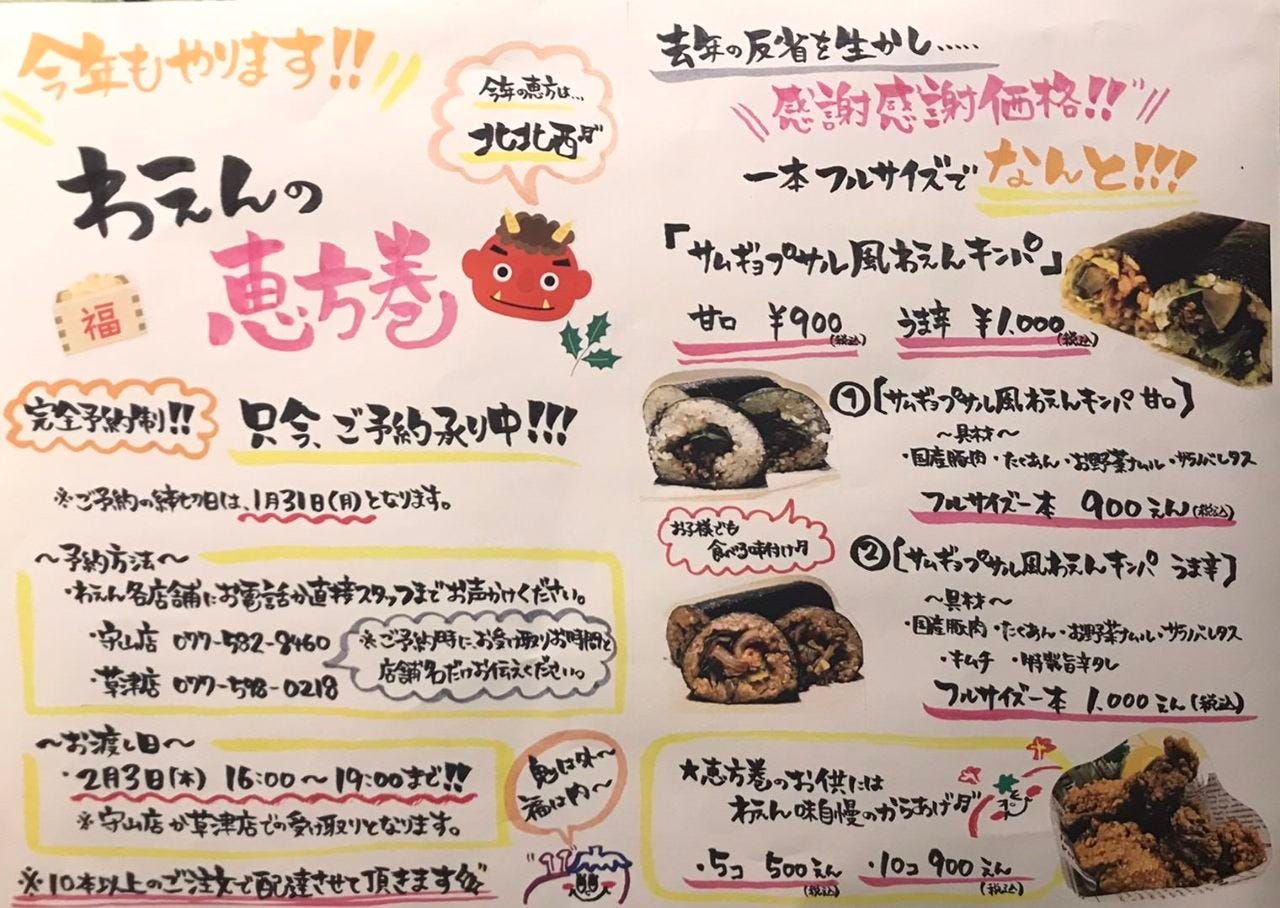 今年もやります!!
今年の恵方は...
北北西だ
わえんの
恵方巻
福
完全予約制!!
只今、ご予約承り中!!!
※ご予約の締切日は、1月31日(月)となります。
〜予約方法〜
・わえん各店舗にお電話か直接スタッフまでお声かけください。
・守山店 077-582-8460
・草津店 077-598-0218
※ご予約時に、お受け取りお時間と
店舗名だけお伝えください。
〜お渡し日〜
・2月3日(木) 16:00〜19:00まで!!
※守山店か草津店での受け取りとなります。
鬼は外〜
福は内〜
※10本以上のご注文で配達させて頂きます
去年の反省を生かし.....
感謝感謝価格!!
一本フルサイズで なんと!!!
「サムギョプサル風わえんキンパ」
甘口 ¥900(税込) うま辛 ¥1.000(税込)
①[サムギョプサル風わえんキンパ 甘口]
〜具材〜
・国産豚肉・たくあん・お野菜ナムル・サラノバレタス
フルサイズ一本 900えん(税込)
お子様でも
食べる味付け
②[サムギョプサル風わえんキンパ うま辛]
〜具材〜
・国産豚肉・たくあん・お野菜ナムル・サラノバレタス
・キムチ ・特製旨辛タレ
フルサイズ一本 1.000えん(税込)
★恵方巻のお供には
わえん味自慢のからあげ
・5コ 500えん(税込) ・10コ 900えん(税込)